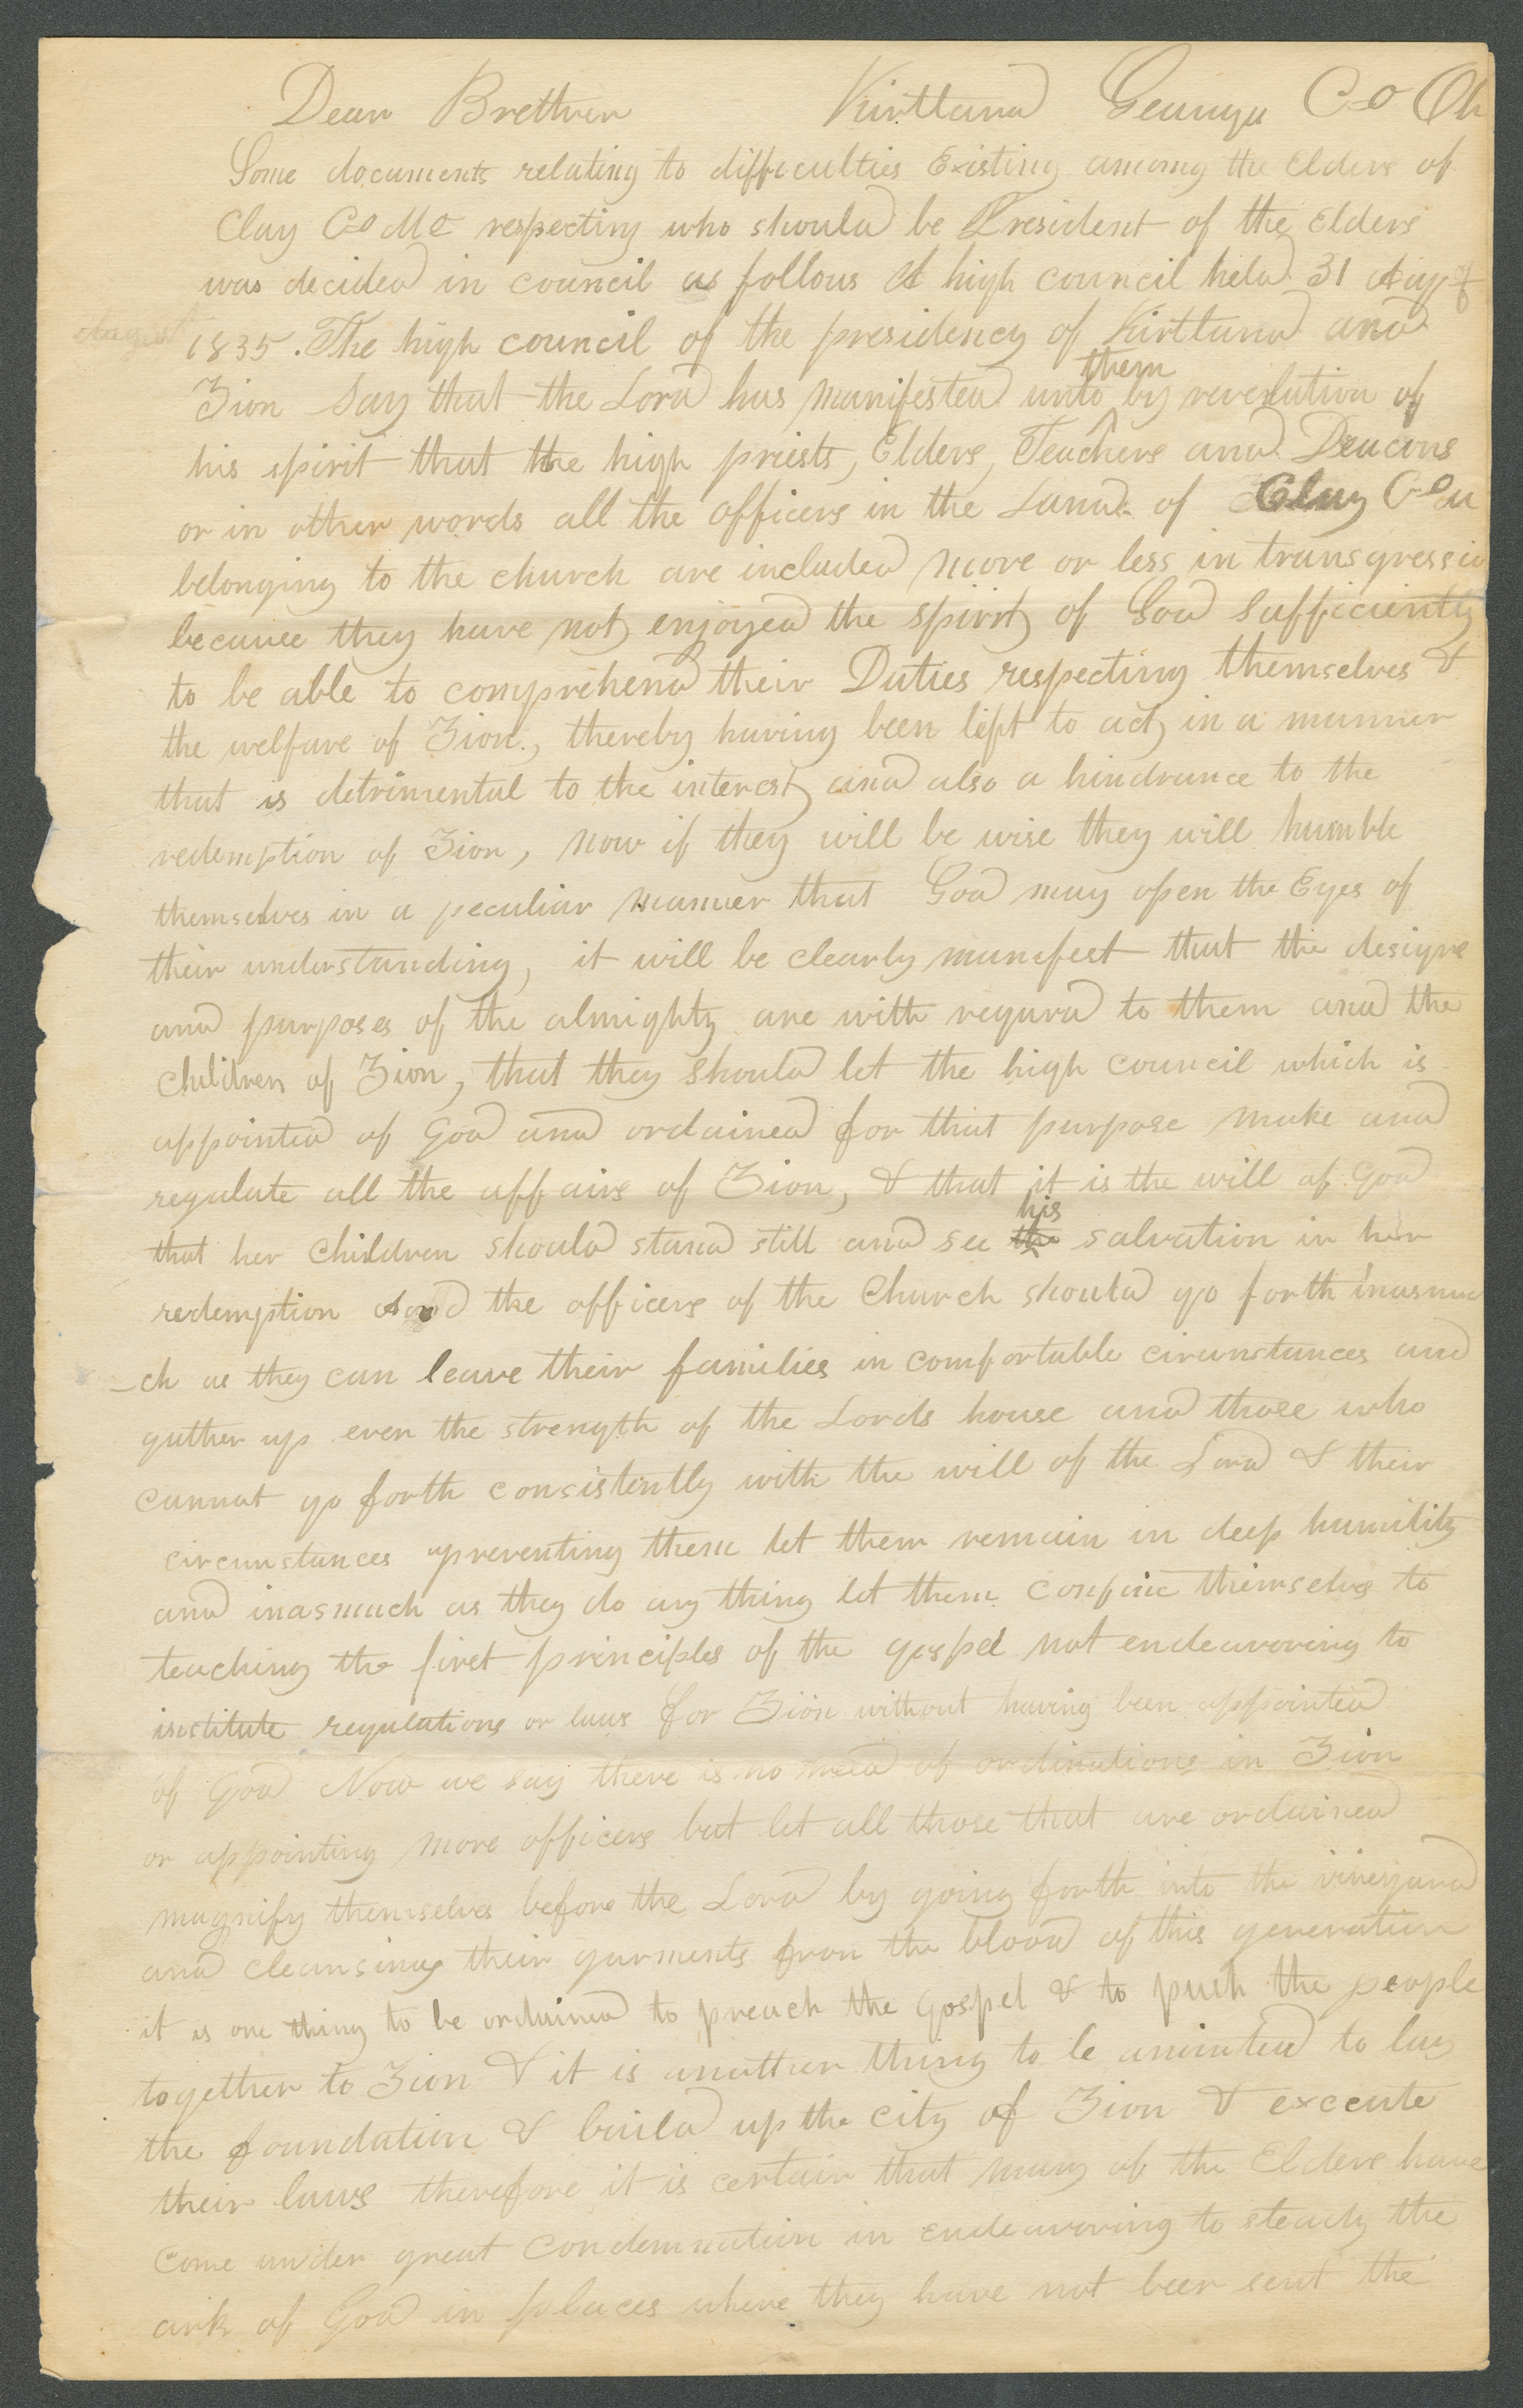 Dear Brethren Kirtland Geauga Co Oh
Some documents relating to difficulties Existing among the Elders of
Clay Co Mo respecting who should be President of the Elders
was decided in council as follows A high council held 31 day of
August
1835. The high council of the presidency of Kirtland and
Zion Say that the Lord has manifested unto them by revelation of
his spirit that the high priests, Elders, Teachers and Deacons
or in other words all the officers in the Land of Clay Co
belonging to the church are included more or less in transgressio
because they have not enjoyed the spirit of God sufficiently
to be able to comprehend their Duties respecting themselves &
the welfare of Zion, thereby having been left to act in a manner
that is detrimental to the interest and also a hindrance to the
redemption of Zion, now if they will be wise they will humble
themselves in a peculiar manner that God may open the Eyes of
their understanding, it will be clearly manifest that the designs
and purposes of the almighty are with regard to them and the
children of Zion, that they should let the high council which is
appointed of God and ordained for that purpose make and
regulate all the affairs of Zion, & that it is the will of God
that her children should stand still and see the his salvation in her
redemption And the officers of the Church should go forth inasmu
-ch as they can leave their families in comfortable circumstances and
gather up even the strength of the Lords house and those who
cannot go forth consistently with the will of the Lord & their
circumstances preventing them let them remain in deep humility
and inasmuch as they do any thing let them confine themselves to
teaching the first principles of the gospel not endeavoring to
institute regulations or laws for Zion without having been appointed
of God Now we say there is no need of ordinations in Zion
or appointing more officers but let all those that are ordained
magnify themselves before the Lord by going forth into the vineyard
and cleansing their garments from the blood of this generation
it is one thing to be ordained to preach the Gospel & to push the people
together to Zion & it is another thing to be anointed to lay
the foundation & build up the city of Zion & execute
their laws therefore it is certain that many of the Elders have
come under great condemnation in endeavoring to steady the
ark of God in places where they have not been sent the